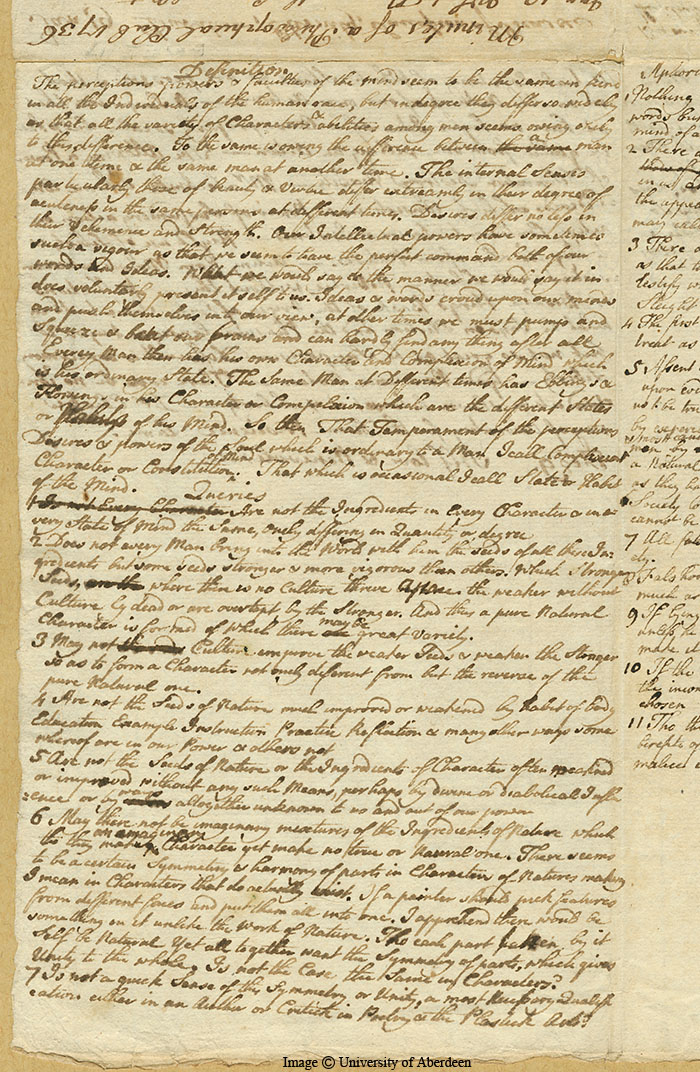 Minutes of a Philosophical Club 1736
Definitions
The perceptions powers & faculties of the mind seem to be the same in kind
in all the Individuals of the human race, but in degree they differ so widely
as that all the variety of Characters & abilities among men seems owing only
to this difference. To the same is owing the difference between the same man
at one time & the same man at another time. The internal Senses
particularly those of beauty & Virtue differ extreamly in their degree of
acuteness in the same persons at different times. Desires differ no less in
their Vehemence and Strength. Our Intellectual powers have sometimes
such a vigour as that we seem to have the perfect command both of our
words and Ideas. What we would say & the manner we would say it in
does voluntarly present it self to us. Ideas & words croud upon our minds
and push themselves into our view, at other times we must pump and
squeeze & beat our brains and can hardly find any thing after all
Every Man then has his own Character and Complexion of Mind which
is his ordinary State. The Same Man at Different times has Ebbings &
Flowings in his Character or Complexion which are the different States
or Habits of his Mind. So then That Temperament of the perceptions
Desires & powers of the Soul which is ordinary to a Man I call Complexion
Character or Constitution of Mind. That which is occasional I call State or Habit
of the Mind.
Queries
1 Do not Every Character Are not the Ingredients in Every Character & in e-
very State of Mind the Same, Only differing in Quantity or degree
2 Does not every Man bring into the World with him the Seeds of all these In-
gredients but some seeds stronger & more vigorous than others. Which Stronger
Seeds, where there is no Culture thrive apace. the weaker without
Culture ly dead or are overtopt by the Stronger. And thus a pure Natural
Character is formed of which there may be great variety.
3 May not Culture improve the weaker Seeds & weaken the Stronger
so as to form a Character not only different from but the reverse of the
pure Natural one.
4 Are not the Seeds of Nature much improved or weakend by habit of body
Education Example Instruction Practice Reflection & many other ways some
whereof are in our Power & others not
5 Are not the Seeds of Nature or the Ingredients of Character often weakend
or improved without any such Means, perhaps by divine or diabolical Influ
ence or by ways altogether unknown to us and out of our power
6 May there not be imaginary mixtures of the Ingredients of Nature which
tho they make an imaginary Character yet make no true or Natural one. There seems
to be a certain Symmetry & harmony of parts in Characters of Natures making
I mean in Characters that do actually exist. If a painter should pick features
from different faces and put them all into one. I apprehend there would be
something in it unlike the Work of Nature. Tho each part taken by it
Self be Natural Yet all together want the Symmetry of parts, which gives
Unity to the whole. Is not the Case the Same in Characters.
7 Is not a quick Sense of this Symmetry or Unity, a most Necessary Qualifi
cation either in an Author or Critick in Poetry & the Plastick Arts?
Aphori
1 Nothing
words but
mind of a
2 There a
in out
the appea
may
3 There
as that
testify
4 The first
treat as
5 Absent
upon
not be
by
men by
a Natural
as they
Society
cannot be
7 All fal
8 Falshoo
much as
9 If
unless
make it
10 If the
the
chosen
11 Tho th
malice
Image © University of Aberdeen